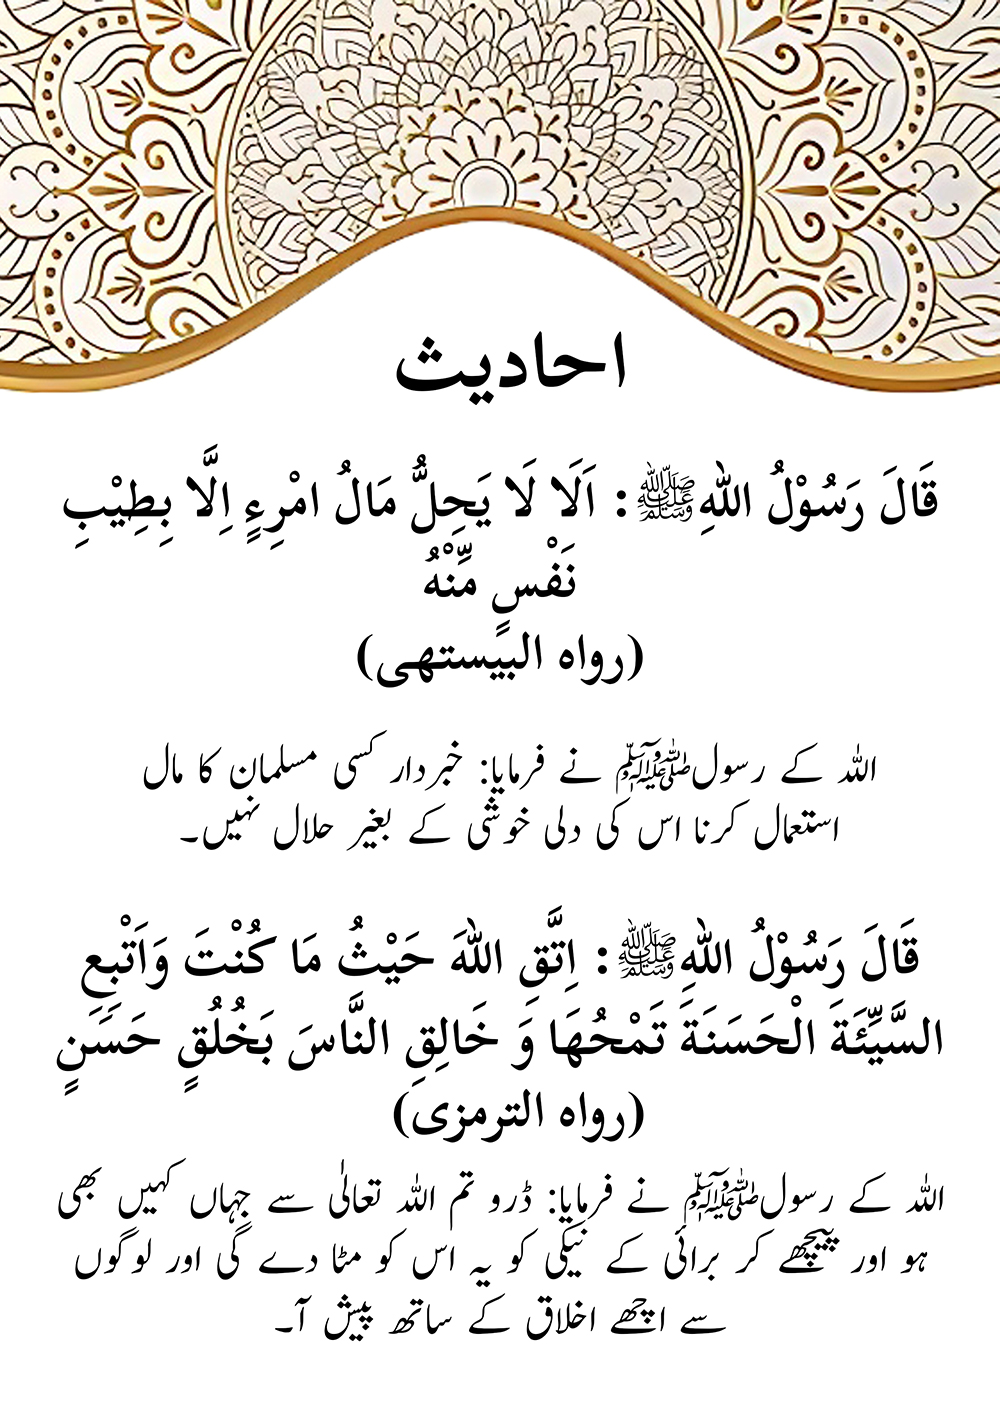 احادیث
قَالَ رَسُوْلُ اللهِﷺ: اَلَا لَا يَحِلُّ مَالُ امْرِءٍ اِلَّا بِطِيْبِ
نَفْسٍ مِّنْهُ
(رواه البيستهى)
اللہ کے رسولﷺ نے فرمایا: خبردار کسی مسلمان کا مال
استعمال کرنا اس کی دلی خوشی کے بغیر حلال نہیں۔
قَالَ رَسُوْلُ اللهِﷺ: اِتَّقِ اللهَ حَيْثُ مَا كُنْتَ وَاَتْبِعِ
السَّيِّئَةَ الْحَسَنَةَ تَمْحُهَا وَ خَالِقِ النَّاسَ بَخُلُقٍ حَسَنٍ
(رواه الترمزى)
اللہ کے رسولﷺ نے فرمایا: ڈرو تم اللہ تعالٰی سے جہاں کہیں بھی
ہو اور پیچھے کر برائی کے نیکی کو یہ اس کو مٹا دے گی اور لوگوں
سے اچھے اخلاق کے ساتھ پیش آ۔